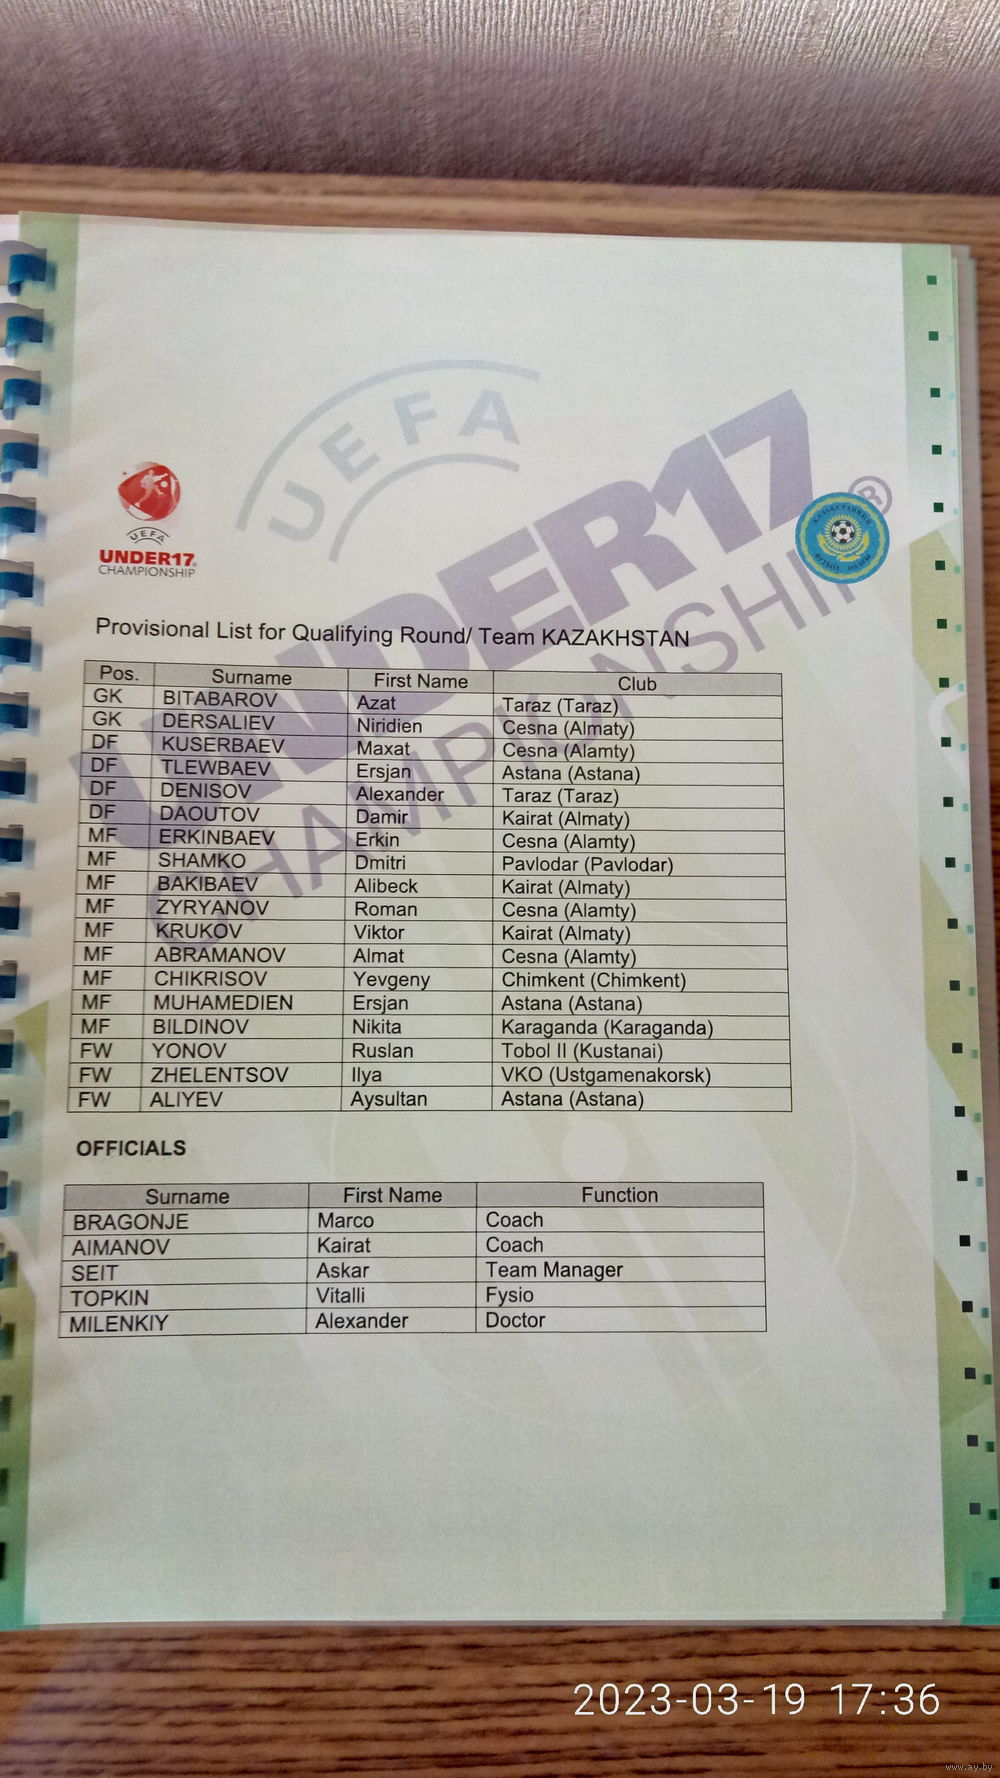 UEFA
UNDER17
CHAMPIONSHIP
®
UEFA
UNDER17
CHAMPIONSHIP
Provisional List for Qualifying Round/ Team KAZAKHSTAN
Pos. Surname First Name Club
GK BITABAROV Azat Taraz (Taraz)
GK DERSALIEV Niridien Cesna (Almaty)
DF KUSERBAEV Maxat Cesna (Alamty)
DF TLEWBAEV Ersjan Astana (Astana)
DF DENISOV Alexander Taraz (Taraz)
DF DAOUTOV Damir Kairat (Almaty)
MF ERKINBAEV Erkin Cesna (Alamty)
MF SHAMKO Dmitri Pavlodar (Pavlodar)
MF BAKIBAEV Alibeck Kairat (Almaty)
MF ZYRYANOV Roman Cesna (Alamty)
MF KRUKOV Viktor Kairat (Almaty)
MF ABRAMANOV Almat Cesna (Alamty)
MF CHIKRISOV Yevgeny Chimkent (Chimkent)
MF MUHAMEDIEN Ersjan Astana (Astana)
MF BILDINOV Nikita Karaganda (Karaganda)
FW YONOV Ruslan Tobol II (Kustanai)
FW ZHELENTSOV Ilya VKO (Ustgamenakorsk)
FW ALIYEV Aysultan Astana (Astana)
OFFICIALS
Surname First Name Function
BRAGONJE Marco Coach
AIMANOV Kairat Coach
SEIT Askar Team Manager
TOPKIN Vitalli Fysio
MILENKIY Alexander Doctor
2023-03-19 17:36
www.ay.by